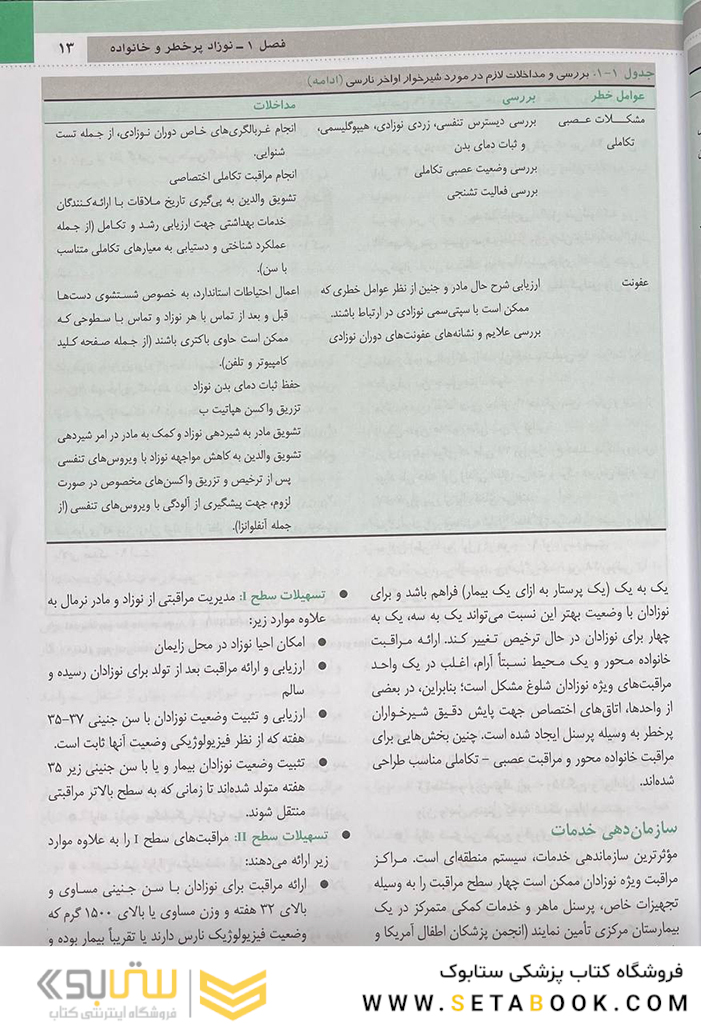 فصل ۱ـ نوزاد پرخطر و خانواده
۱۳
جدول ۱-۱. بررسی و مداخلات لازم در مورد شیرخوار اواخر نارسی (ادامه)
عوامل خطر
بررسی
مداخلات
مشکـلات عـصبی
تکاملی
بررسی دیسترس تنفسی، زردی نوزادی، هیپوگلیسمی،
و ثبات دمای بدن
بررسی وضعیت عصبی تکاملی
بررسی فعالیت تشنجی
انجام غربالگری‌های خاص دوران نوزادی، از جمله تست
شنوایی.
انجام مراقبت تکاملی اختصاصی
تشویق والدین به پی‌گیری تاریخ ملاقات با ارائه‌کنندگان
خدمات بهداشتی جهت ارزیابی رشد و تکامل (از جمله
عملکرد شناختی و دستیابی به معیارهای تکاملی متناسب
با سن).
عفونت
ارزیابی شرح حال مادر و جنین از نظر عوامل خطری که
ممکن است با سپتی‌سمی نوزادی در ارتباط باشند.
بررسی علایم و نشانه‌های عفونت‌های دوران نوزادی
اعمال احتیاطات استاندارد، به خصوص شستشوی دست‌ها
قبل و بعد از تماس با هر نوزاد و تماس با سطوحی که
ممکن است حاوی باکتری باشند (از جمله صفحه کلید
کامپیوتر و تلفن).
حفظ ثبات دمای بدن نوزاد
تزریق واکسن هپاتیت ب
تشویق مادر به شیردهی نوزاد و کمک به مادر در امر شیردهی
تشویق والدین به کاهش مواجهه نوزاد با ویروس‌های تنفسی
پس از ترخیص و تزریق واکسن‌های مخصوص در صورت
لزوم، جهت پیشگیری از آلودگی با ویروس‌های تنفسی (از
جمله آنفلوانزا).
یک به یک (یک پرستار به ازای یک بیمار) فراهم باشد و برای
نوزادان با وضعیت بهتر این نسبت می‌تواند یک به سه، یک به
چهار برای نوزادان در حال ترخیص تغییر کند. ارائه مراقبت
خانواده محور و یک محیط نسبتاً آرام، اغلب در یک واحد
مراقبت‌های ویژه نوزادان شلوغ مشکل است؛ بنابراین، در بعضی
از واحدها، اتاق‌های اختصاص جهت پایش دقیق شیرخواران
پرخطر به وسیله پرسنل ایجاد شده است. چنین بخش‌هایی برای
مراقبت خانواده محور و مراقبت عصبی – تکاملی مناسب طراحی
شده‌اند.
سازمان‌دهی خدمات
مؤثرترین سازماندهی خدمات، سیستم منطقه‌ای است. مراکز
مراقبت ویژه نوزادان ممکن است چهار سطح مراقبت را به وسیله
تجهیزات خاص، پرسنل ماهر و خدمات کمکی متمرکز در یک
بیمارستان مرکزی تأمین نمایند (انجمن پزشکان اطفال آمریکا و
● تسهیلات سطح I: مدیریت مراقبتی از نوزاد و مادر نرمال به
علاوه موارد زیر:
● امکان احیا نوزاد در محل زایمان
● ارزیابی و ارائه مراقبت بعد از تولد برای نوزادان رسیده و
سالم
● ارزیابی و تثبیت وضعیت نوزادان با سن جنینی ۳۷–۳۵
هفته که از نظر فیزیولوژیکی وضعیت آنها ثابت است.
● تثبیت وضعیت نوزادان بیمار و یا با سن جنینی زیر ۳۵
هفته متولد شده‌اند تا زمانی که به سطح بالاتر مراقبتی
منتقل شوند.
● تسهیلات سطح II: مراقبت‌های سطح I را به علاوه موارد
زیر ارائه می‌دهند:
● ارائه مراقبت برای نوزادان با سن جنینی مساوی و
بالای ۳۲ هفته و وزن مساوی یا بالای ۱۵۰۰ گرم که
وضعیت فیزیولوژیک نارس دارند یا تقریباً بیمار بوده و
فروشگاه کتاب پزشکی ستابوک
WWW.SETABOOK.COM
ستابوک
فروشگاه اینترنتی کتاب